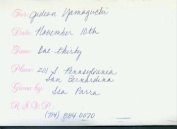 For: Gideon Yamaguchi
Date: November 10th
Time: Dat Thirty
Place: 211 S. Pennsylvania
San Bernardino
Given by: Isa Parra
R.S.V.P.
(714) 884-0470